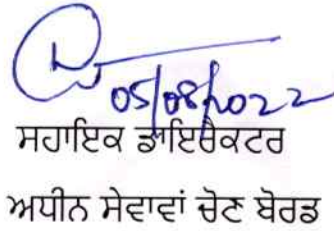 05/08/2022
ਸਹਾਇਕ ਡਾਇਰੈਕਟਰ
ਅਧੀਨ ਸੇਵਾਵਾਂ ਚੋਣ ਬੋਰਡ